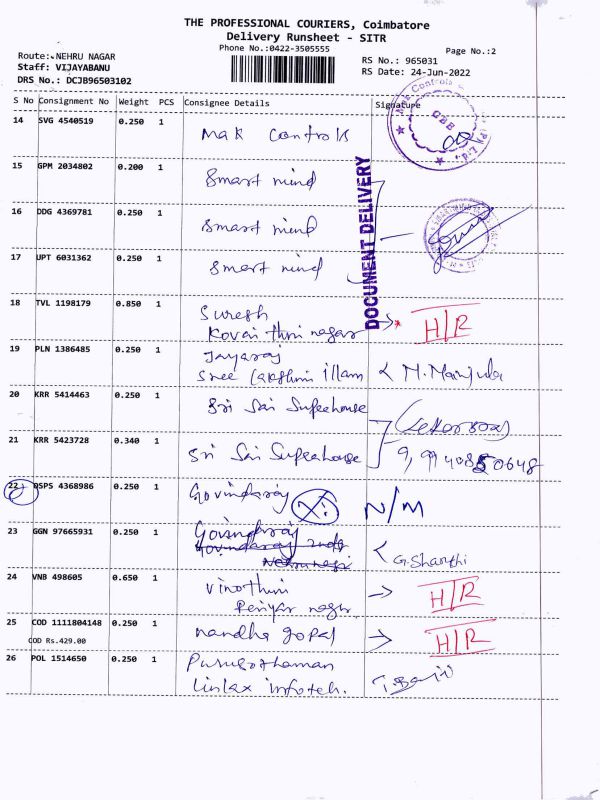 THE PROFESSIONAL COURIERS, Coimbatore
Delivery Runsheet - SITR
Phone No.:0422-3505555
Page No.:2
Route:-NEHRU NAGAR
Staff: VIJAYABANU
DRS No.: DCJB96503102
RS No.: 965031
RS Date: 24-Jun-2022
S No Consignment No Weight PCS Consignee Details Signature
14 SVG 4540519 0.250 1 Mak Controls
15 GPM 2034802 0.200 1 Smart mind
16 DDG 4369781 0.250 1 Smart mind
17 UPT 6031362 0.250 1 Smart mind
DOCUMENT DELIVERY
18 TVL 1198179 0.850 1 Suresh
Kovai thiru nagar H/R
19 PLN 1386485 0.250 1 Jayaraj
Sree Lakshmi illam M. Manjula
20 KRR 5414463 0.250 1 Sri Sai
21 KRR 5423728 0.340 1 Sri Sai
22 PSPS 4368986 0.250 1 Govindaraj N/M
23 GGN 97665931 0.250 1 Govindaraj
G. Shanthi
24 VNB 498605 0.650 1 Vinothini
Periyar nagar H/R
25 COD 1111804148 0.250 1 nandha gopal H/R
COD Rs.429.00
26 POL 1514650 0.250 1 Purusothaman
Linlax infotech.